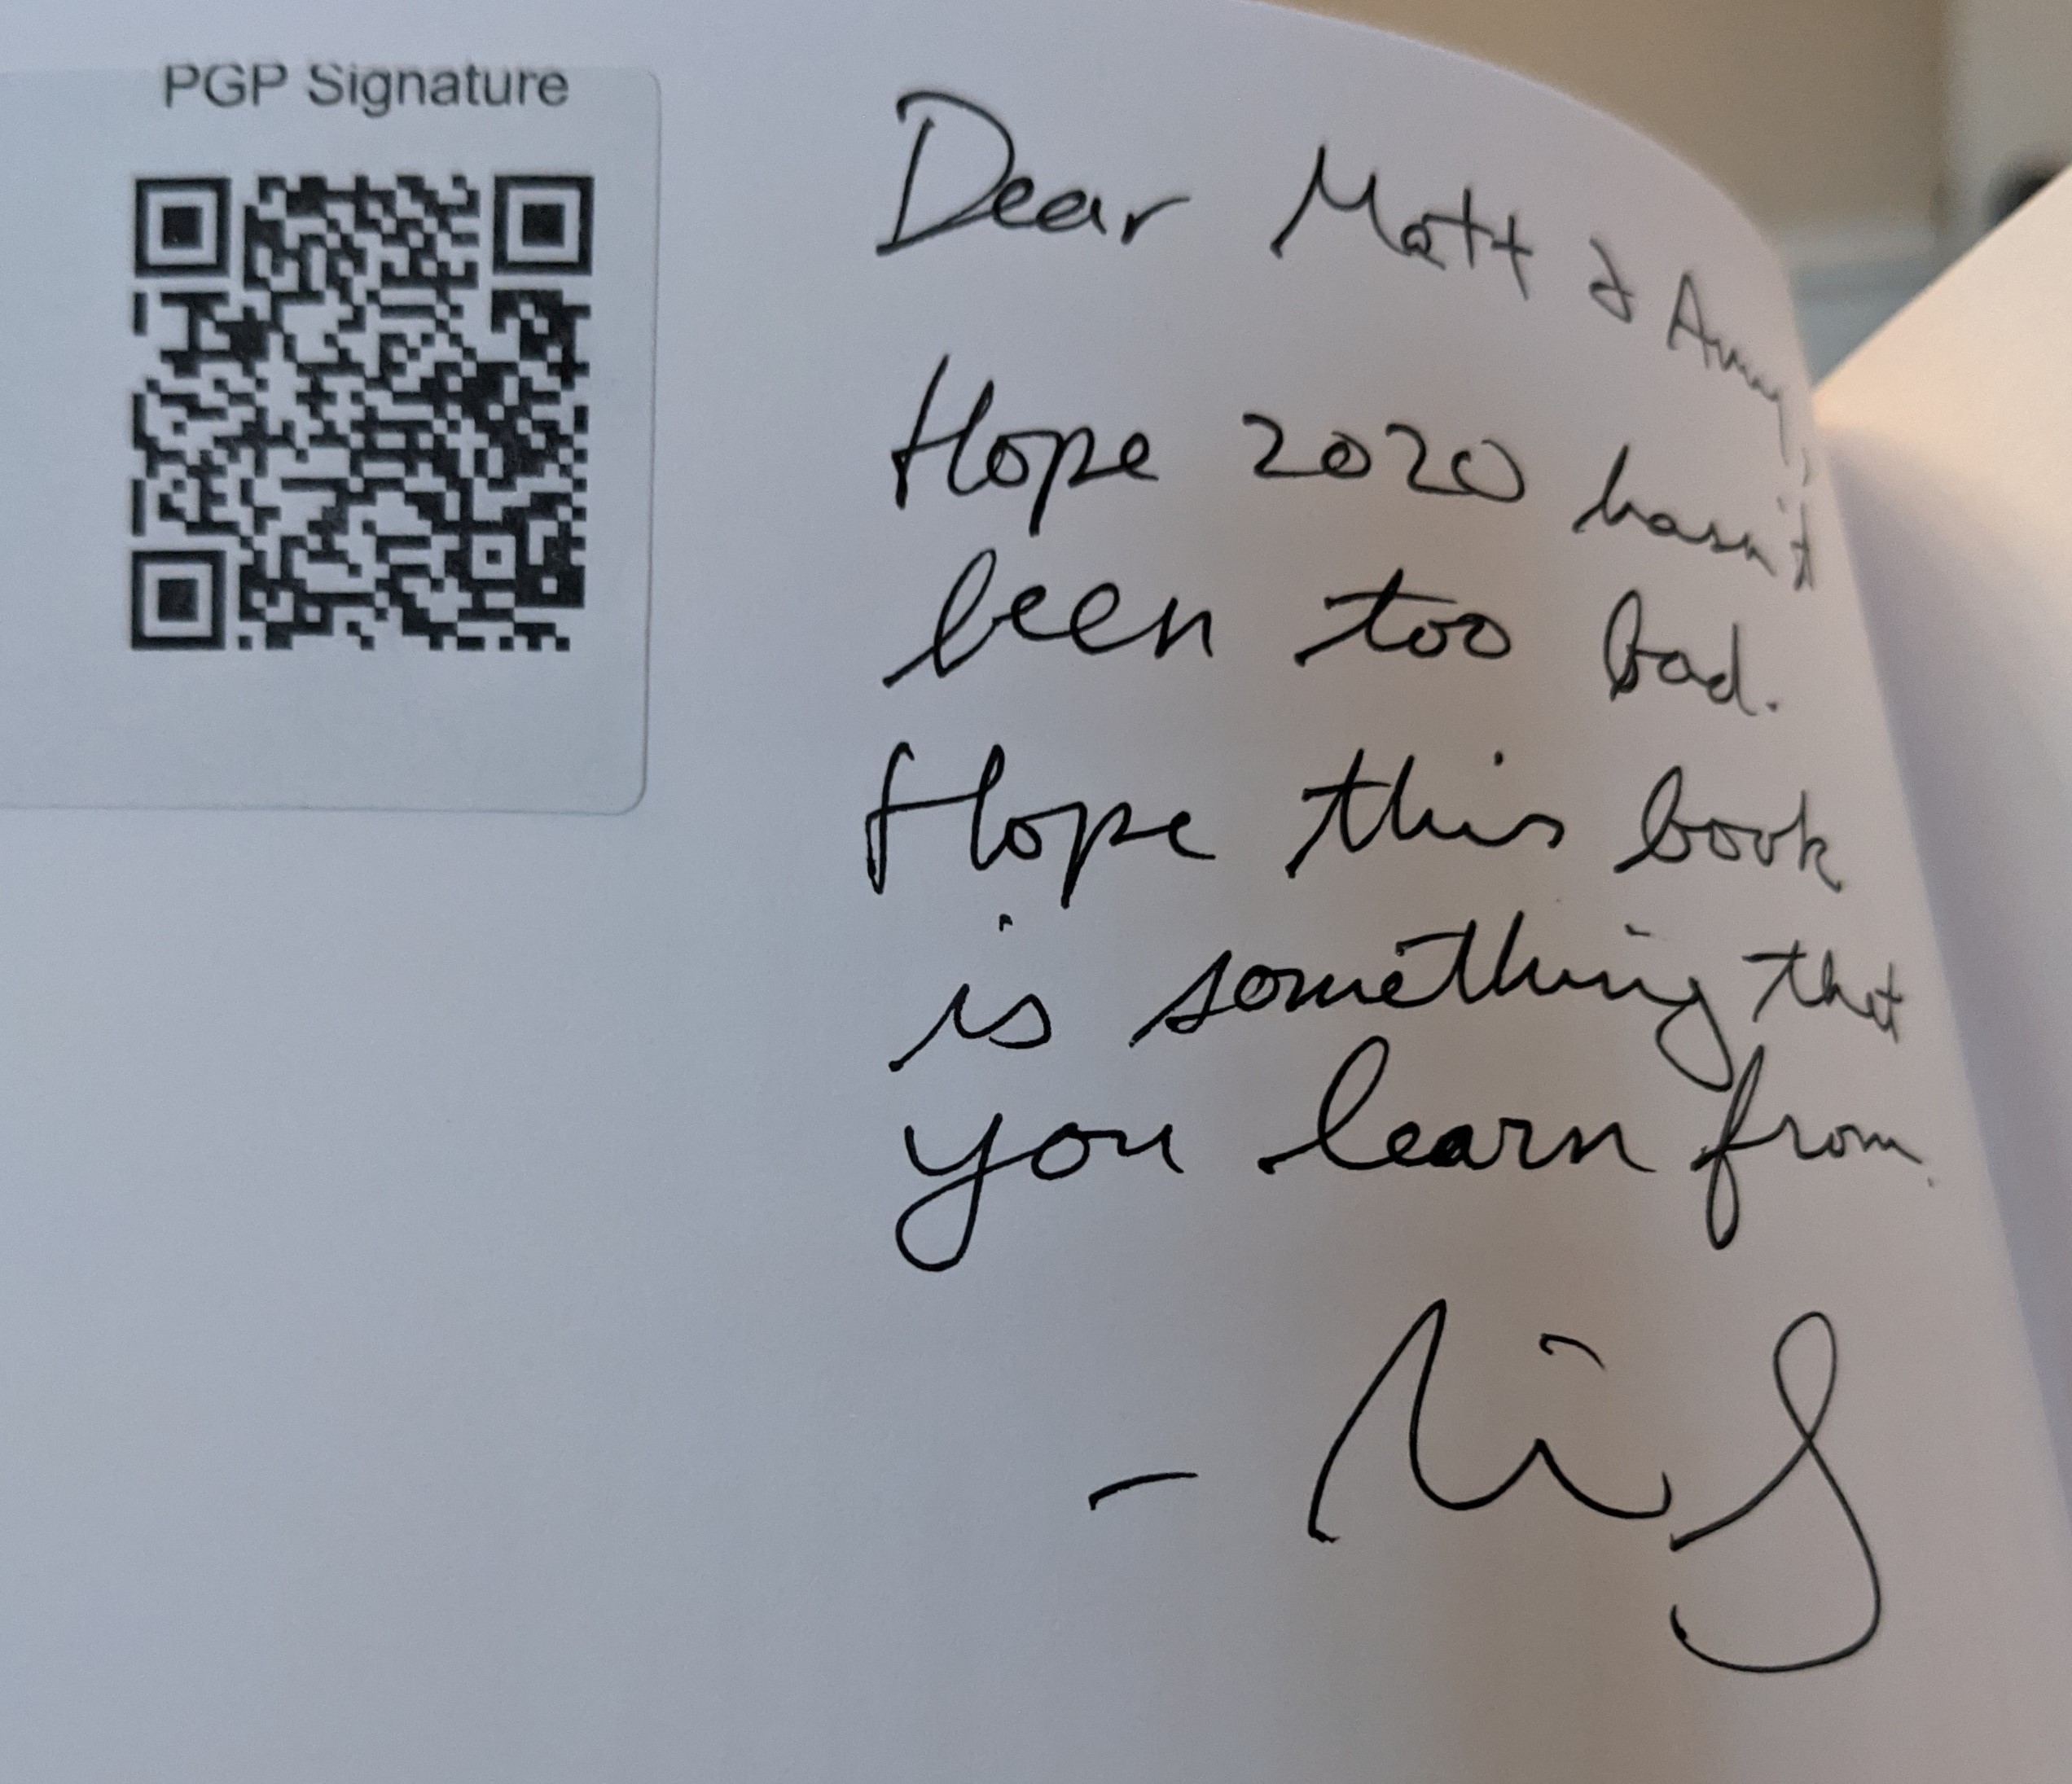 PGP Signature
Dear Matt & Amy,
Hope 2020 hasn't
been too bad.
Hope this book
is something that
you learn from.
-